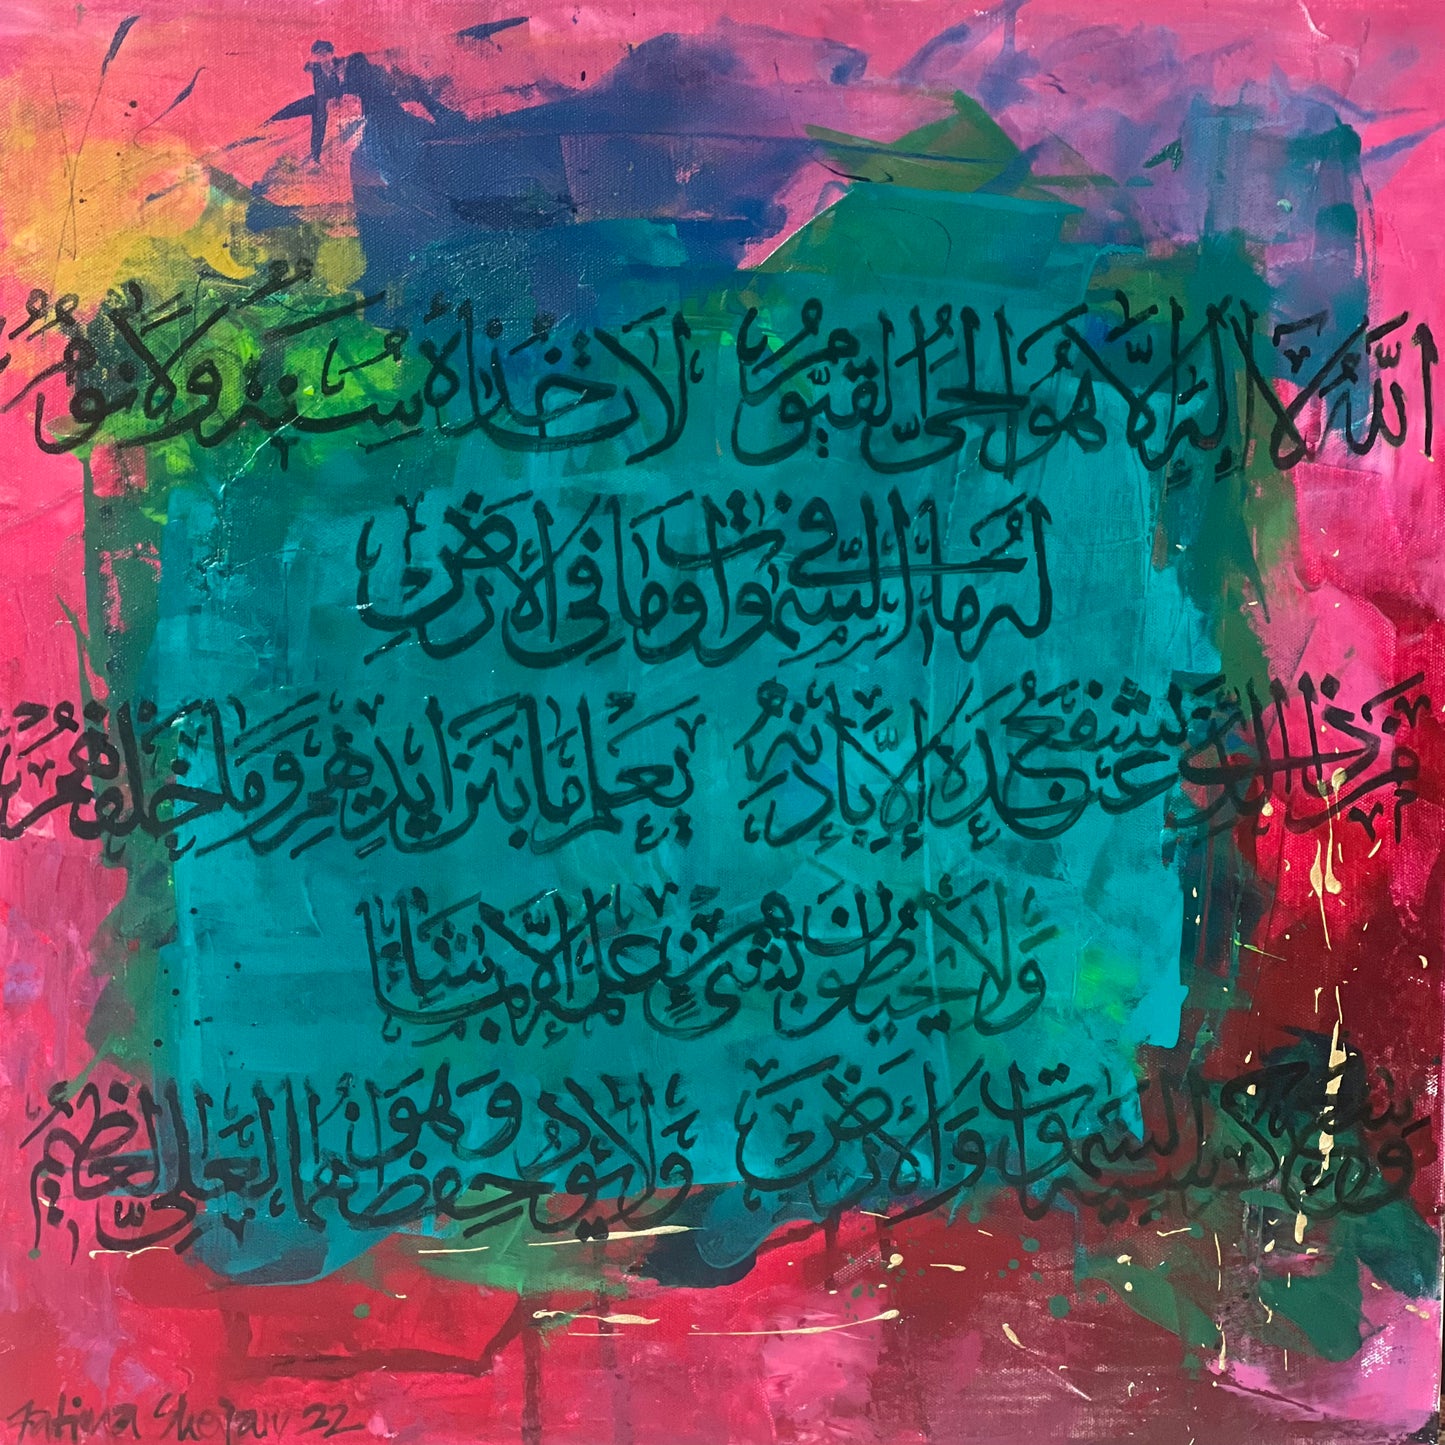 اللَّهُ لَا إِلَٰهَ إِلَّا هُوَ الْحَيُّ الْقَيُّومُ لَا تَأْخُذُهُ سِنَةٌ وَلَا نَوْمٌ
لَهُ مَا فِي السَّمَٰوَاتِ وَمَا فِي الْأَرْضِ
مَنْ ذَا الَّذِي يَشْفَعُ عِنْدَهُ إِلَّا بِإِذْنِهِ يَعْلَمُ مَا بَيْنَ أَيْدِيهِمْ وَمَا خَلْفَهُمْ
وَلَا يُحِيطُونَ بِشَيْءٍ مِنْ عِلْمِهِ إِلَّا بِمَا شَاءَ
وَسِعَ كُرْسِيُّهُ السَّمَٰوَاتِ وَالْأَرْضَ وَلَا يَئُودُهُ حِفْظُهُمَا وَهُوَ الْعَلِيُّ الْعَظِيمُ
Fatima 22